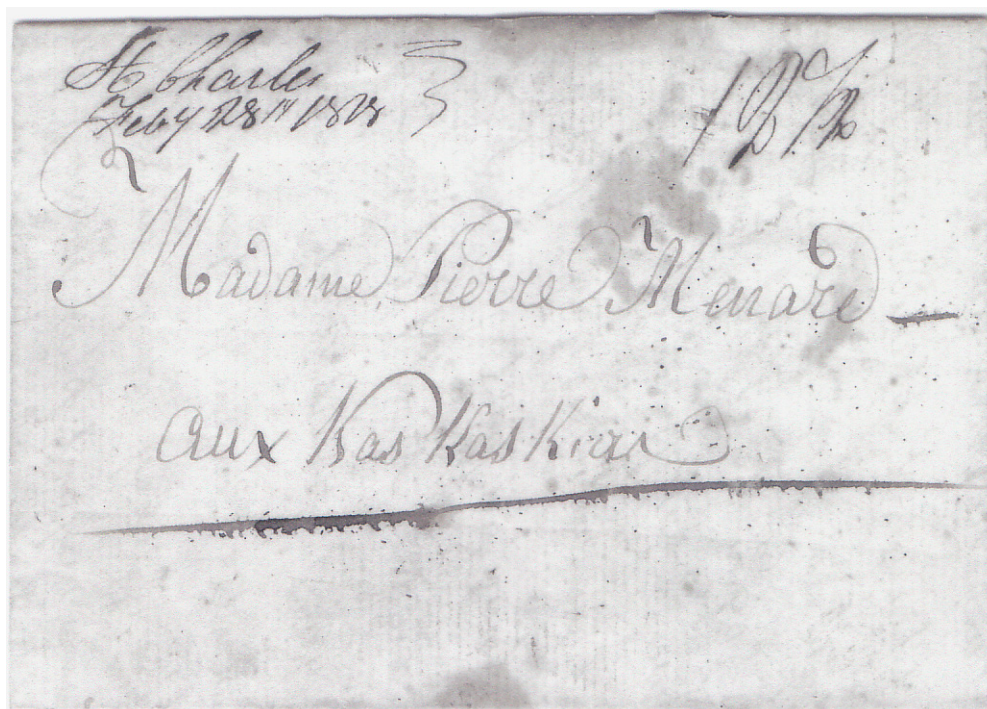 St Charles
Feby 28th 1828
12 1/2
Madame Pierre Menard
aux KasKasKias